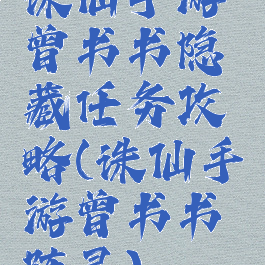 诛仙手游
曾书书隐
藏任务攻
略(诛仙手
游曾书书
隐灵)